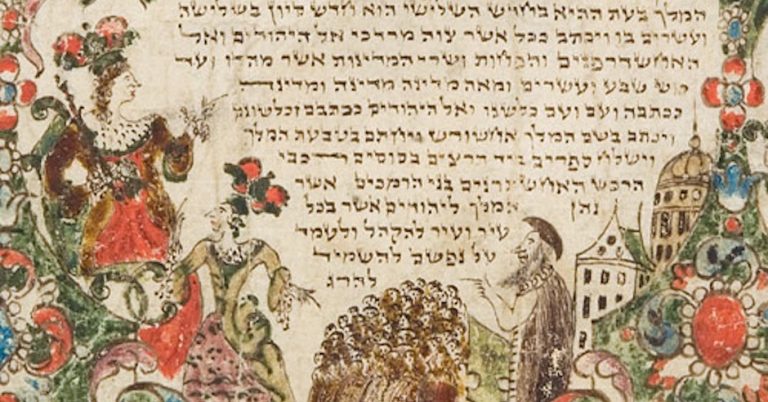 המלך בעת ההיא בחדש השלישי הוא חדש סיון בשלושה
ועשרים בו ויכתב ככל אשר צוה מרדכי אל היהודים ואל
האחשדרפנים והפחות ושרי המדינות אשר מהדו ועד
כוש שבע ועשרים ומאה מדינה מדינה ומדינה
ככתבה ועם ועם כלשנו ואל היהודים ככתבם וכלשונם
ויכתב בשם המלך אחשורש ויחתם בטבעת המלך
וישלח ספרים ביד הרצים בסוסים רכבי
הרכש האחשתרנים בני הרמכים אשר
נתן המלך ליהודים אשר בכל
עיר ועיר להקהל ולעמד
על נפשם להשמיד
להרג